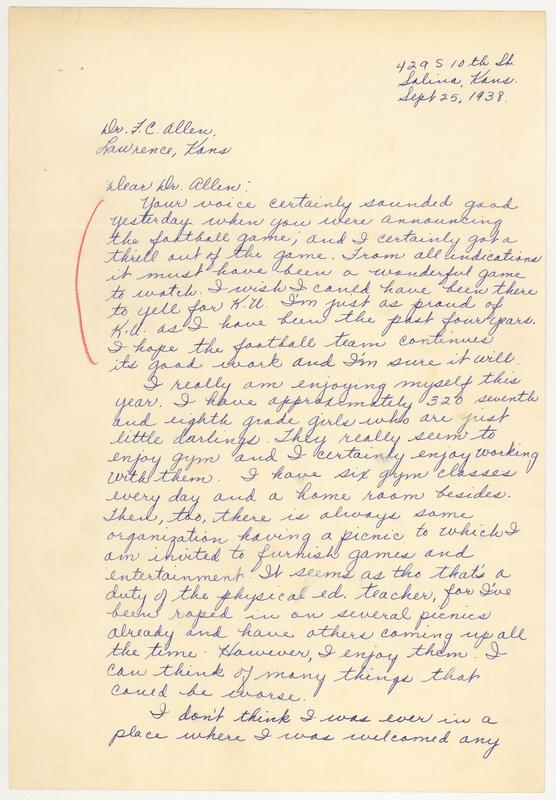 429 S 10th St.
Salina, Kans.
Sept 25, 1938.
Dr. F. C. Allen,
Lawrence, Kans
Dear Dr. Allen:
Your voice certainly sounded good
yesterday when you were announcing
the football game; and I certainly got a
thrill out of the game. From all indications
it must have been a wonderful game
to watch. I wish I could have been there
to yell for K.U. I'm just as proud of
K.U. as I have been the past four years.
I hope the football team continues
its good work and I'm sure it will.
I really am enjoying myself this
year. I have approximately 320 seventh
and eighth grade girls who are just
little darlings. They really seem to
enjoy gym and I certainly enjoy working
with them. I have six gym classes
every day and a home room besides.
Then, too, there is always some
organization having a picnic to which I
am invited to furnish games and
entertainment. It seems as tho that's a
duty of the physical ed. teacher, for I've
been roped in on several picnics
already and have others coming up all
the time. However, I enjoy them. I
can think of many things that
could be worse.
I don't think I was ever in a
place where I was welcomed any